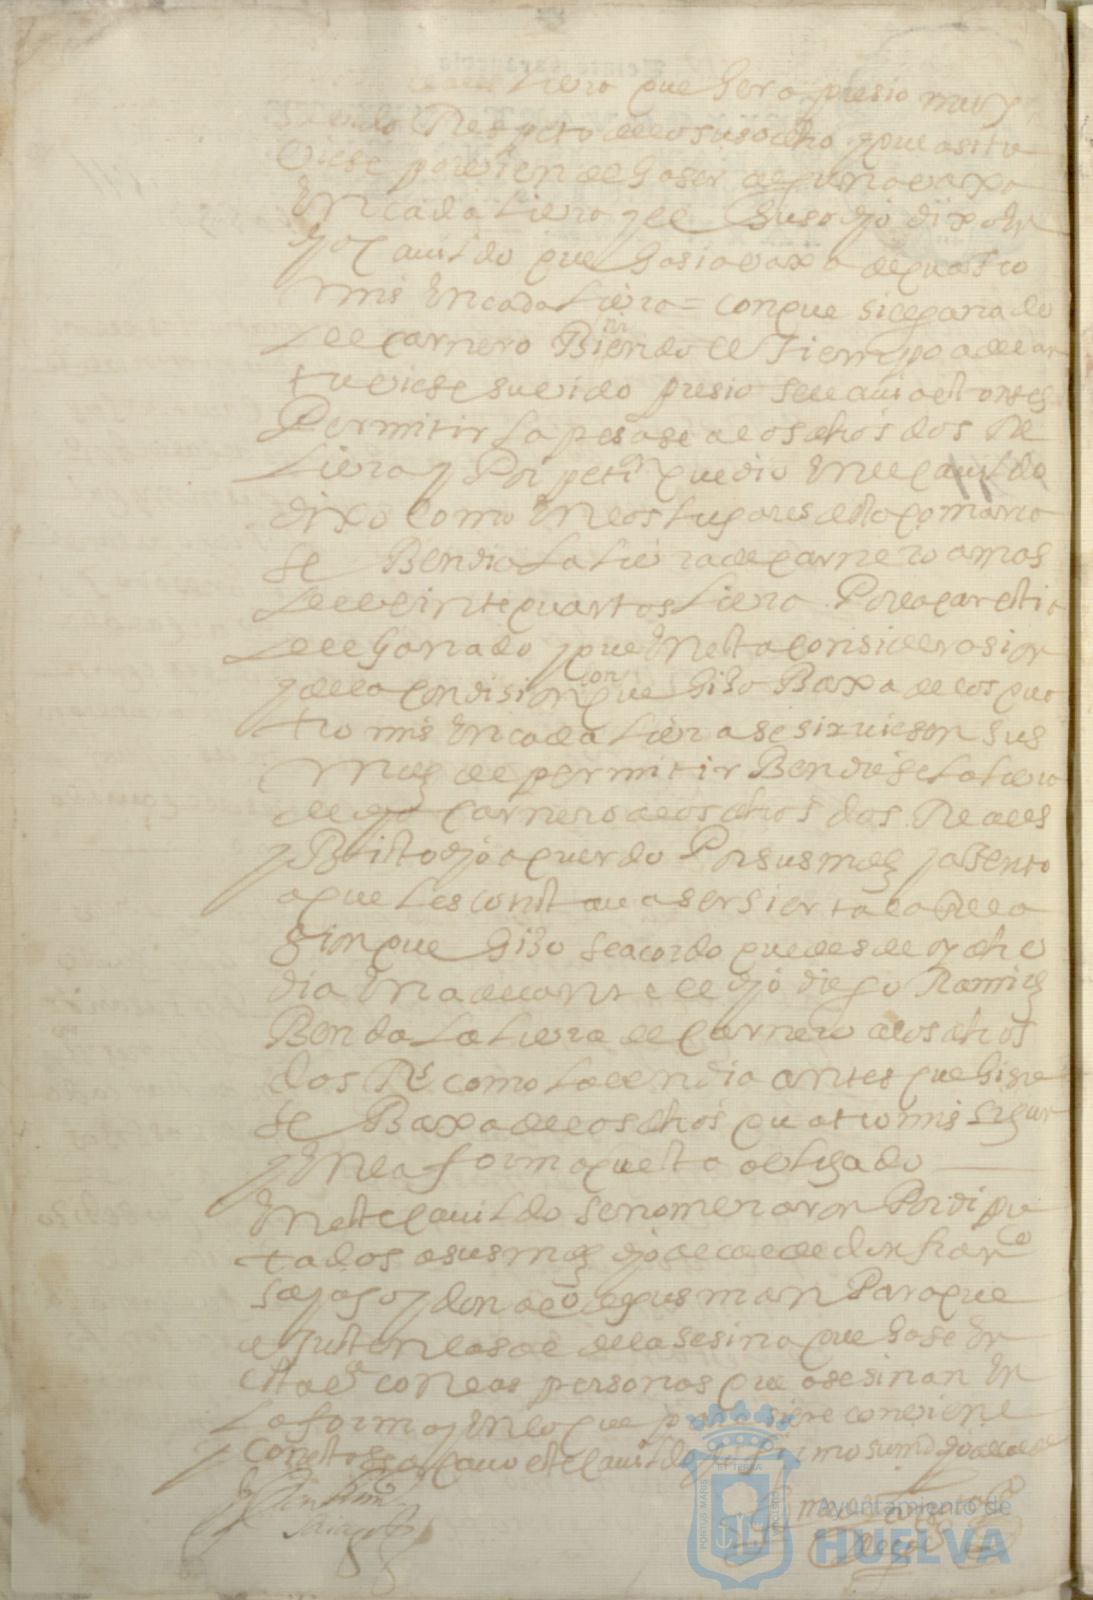 libra que hera presio muy
subido Respeto de lo susodho y que asi tu
biese por bien de haser alguna baxa
En cada libra y el susodho dixo En
dho cauildo que hasia baxa de quatro
mrs En cada libra = con que si el ganado
del carnero Biniendo el Tiempo adelan
tubiese subido presio se le auia entonses
Permitir la pesase a los dhos dos Rs
libra y Por petion que dio En el cauildo
dixo como En los lugares desta comarca
se Bendia la libra de carnero a mas
de beinte quartos libra Por la carestia
del ganado y que En esta considerasion
y de la condision con que hiso Baxa de los qua
tro mrs En cada libra se siruiesen sus
mds de permitir Benderse la libra
de dho carnero a los dhos dos Reales
y Bisto dho acuerdo Por sus mds y atento
a que les constaua ser sierta la Rela
sion que hiso se acordo que desde oy dho
dia En adelante el dho diego Ramires
Benda la libra de carnero a los dhos
dos Rs como la bendia antes que hisie
se Baxa de los dhos quatro mrs segun
y En la forma questa obligado
En este cauildo se nombraron Por dipu
tados a sus mds dho alcalde don franco
y don alo de gusman Para que
ajusten las de la sesina que hase En
esta con las personas que asesinan En
la forma y En lo que conbiene
y con esto se acauo este cauildo y lo firmo su md dho alcalde
Ayuntamiento de
HUELVA
PORTUS MARIS
ET TERRAE
CUSTODIA